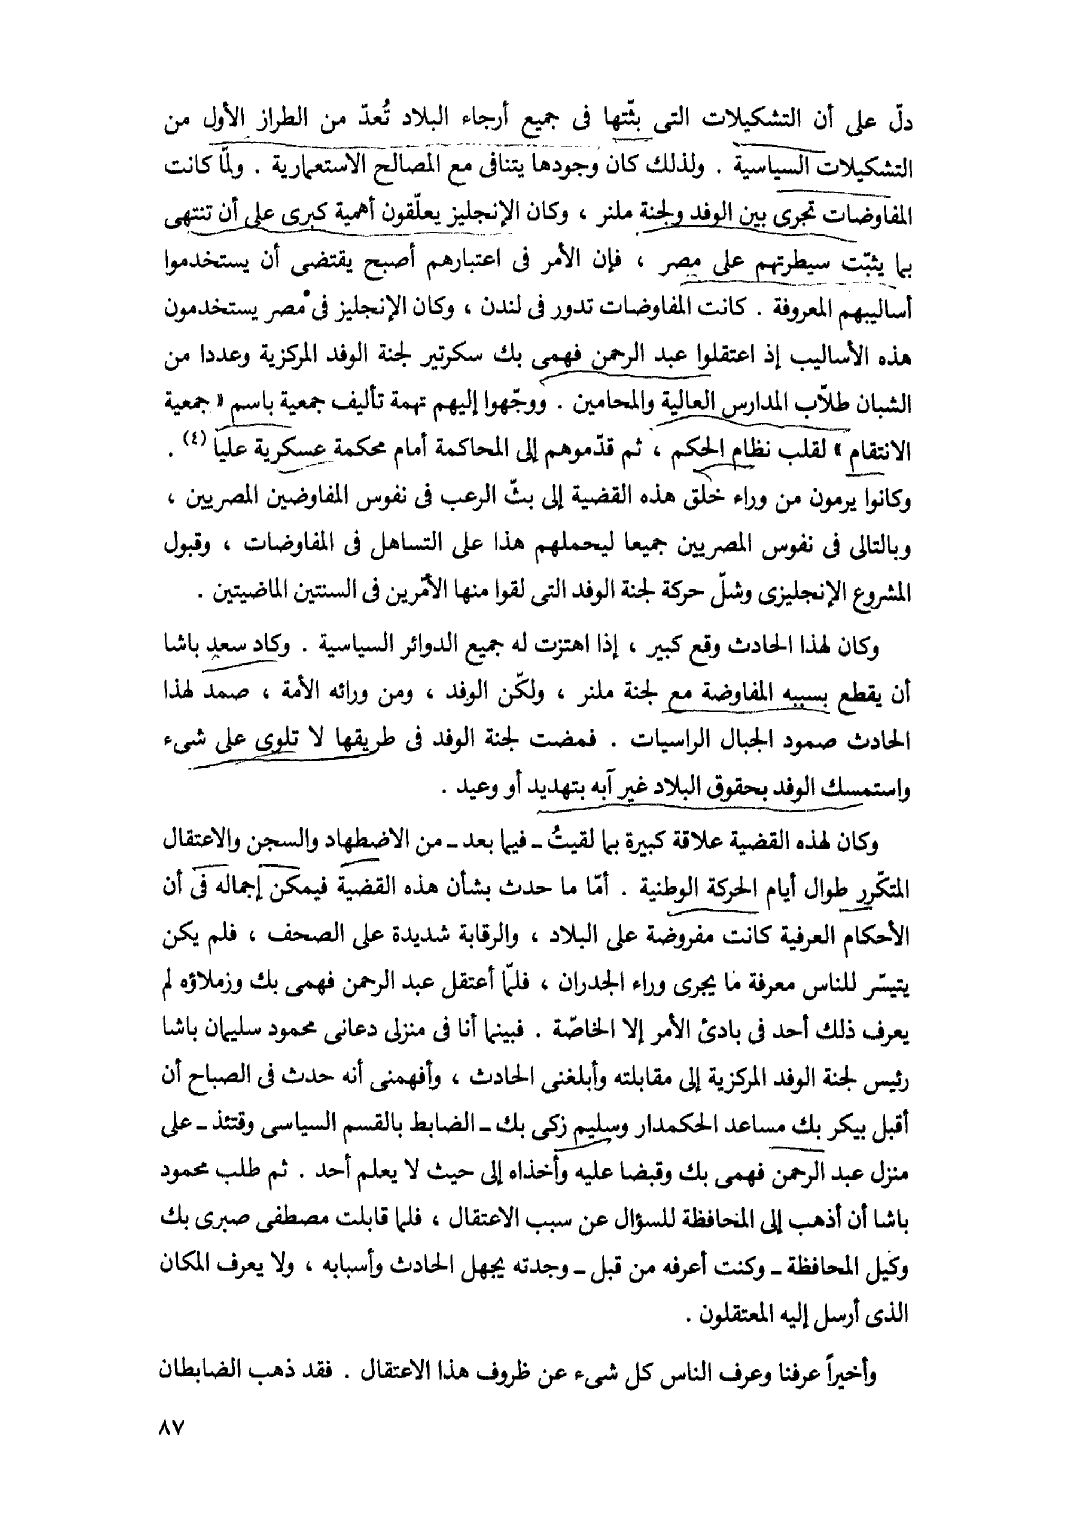 دلّ على أن التشكيلات التى بثّتها فى جميع أرجاء البلاد تُعدّ من الطراز الأول من
التشكيلات السياسية . ولذلك كان وجودها يتنافى مع المصالح الاستعمارية . ولمّا كانت
المفاوضات تجرى بين الوفد ولجنة ملنر ، وكان الإنجليز يعلّقون أهمية كبرى على أن تنتهى
بما يثبّت سيطرتهم على مصر ، فإن الأمر فى اعتبارهم أصبح يقتضى أن يستخدموا
أساليبهم المعروفة . كانت المفاوضات تدور فى لندن ، وكان الإنجليز فى مصر يستخدمون
هذه الأساليب إذ اعتقلوا عبد الرحمن فهمى بك سكرتير لجنة الوفد المركزية وعددا من
الشبان طلّاب المدارس العالية والمحامين . ووجّهوا إليهم تهمة تأليف جمعية باسم « جمعية
الانتقام » لقلب نظام الحكم ، ثم قدّموهم إلى المحاكمة أمام محكمة عسكرية عليا (٤) .
وكانوا يرمون من وراء خلق هذه القضية إلى بثّ الرعب فى نفوس المفاوضين المصريين ،
وبالتالى فى نفوس المصريين جميعا ليحملهم هذا على التساهل فى المفاوضات ، وقبول
المشروع الإنجليزى وشلّ حركة لجنة الوفد التى لقوا منها الأمّرين فى السنتين الماضيتين .
وكان لهذا الحادث وقع كبير ، إذا اهتزت له جميع الدوائر السياسية . وكاد سعد باشا
أن يقطع بسببه المفاوضة مع لجنة ملنر ، ولكّن الوفد ، ومن ورائه الأمة ، صمد لهذا
الحادث صمود الجبال الراسيات . فمضت لجنة الوفد فى طريقها لا تلوى على شىء
واستمسك الوفد بحقوق البلاد غير آبه بتهديد أو وعيد .
وكان لهذه القضية علاقة كبيرة بما لقيتُ ـ فيما بعد ـ من الاضطهاد والسجن والاعتقال
المتكّرر طوال أيام الحركة الوطنية . أمّا ما حدث بشأن هذه القضية فيمكن إجماله فى أن
الأحكام العرفية كانت مفروضة على البلاد ، والرقابة شديدة على الصحف ، فلم يكن
يتيسّر للناس معرفة ما يجرى وراء الجدران ، فلمّا أعتقل عبد الرحمن فهمى بك وزملاؤه لم
يعرف ذلك أحد فى بادئ الأمر إلا الخاصّة . فبينما أنا فى منزلى دعانى محمود سليمان باشا
رئيس لجنة الوفد المركزية إلى مقابلته وأبلغنى الحادث ، وأفهمنى أنه حدث فى الصباح أن
أقبل بيكر بك مساعد الحكمدار وسليم زكى بك ـ الضابط بالقسم السياسى وقتئذ ـ على
منزل عبد الرحمن فهمى بك وقبضا عليه وأخذاه إلى حيث لا يعلم أحد . ثم طلب محمود
باشا أن أذهب إلى المحافظة للسؤال عن سبب الاعتقال ، فلما قابلت مصطفى صبرى بك
وكيل المحافظة ـ وكنت أعرفه من قبل ـ وجدته يجهل الحادث وأسبابه ، ولا يعرف المكان
الذى أرسل إليه المعتقلون .
وأخيراً عرفنا وعرف الناس كل شىء عن ظروف هذا الاعتقال . فقد ذهب الضابطان
٨٧